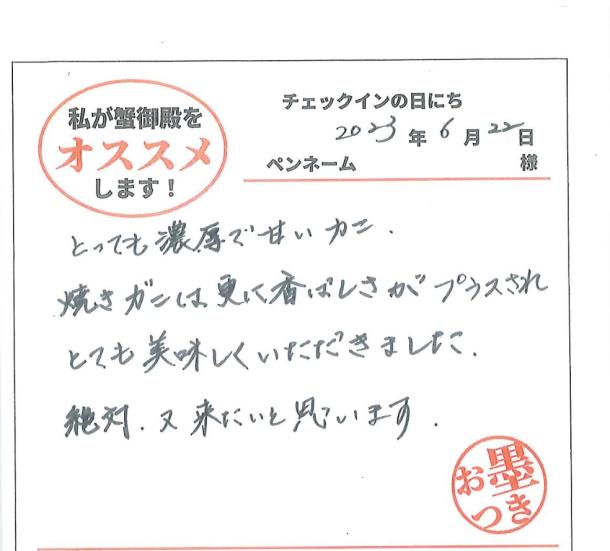 私が蟹御殿を
オススメ
します！
チェックインの日にち
2023年6月22日
ペンネーム 様
とっても濃厚で甘いカニ.
焼きガニは更に香ばしさがプラスされ
とても美味しくいただきました.
絶対.又来たいと思います.
お墨つき